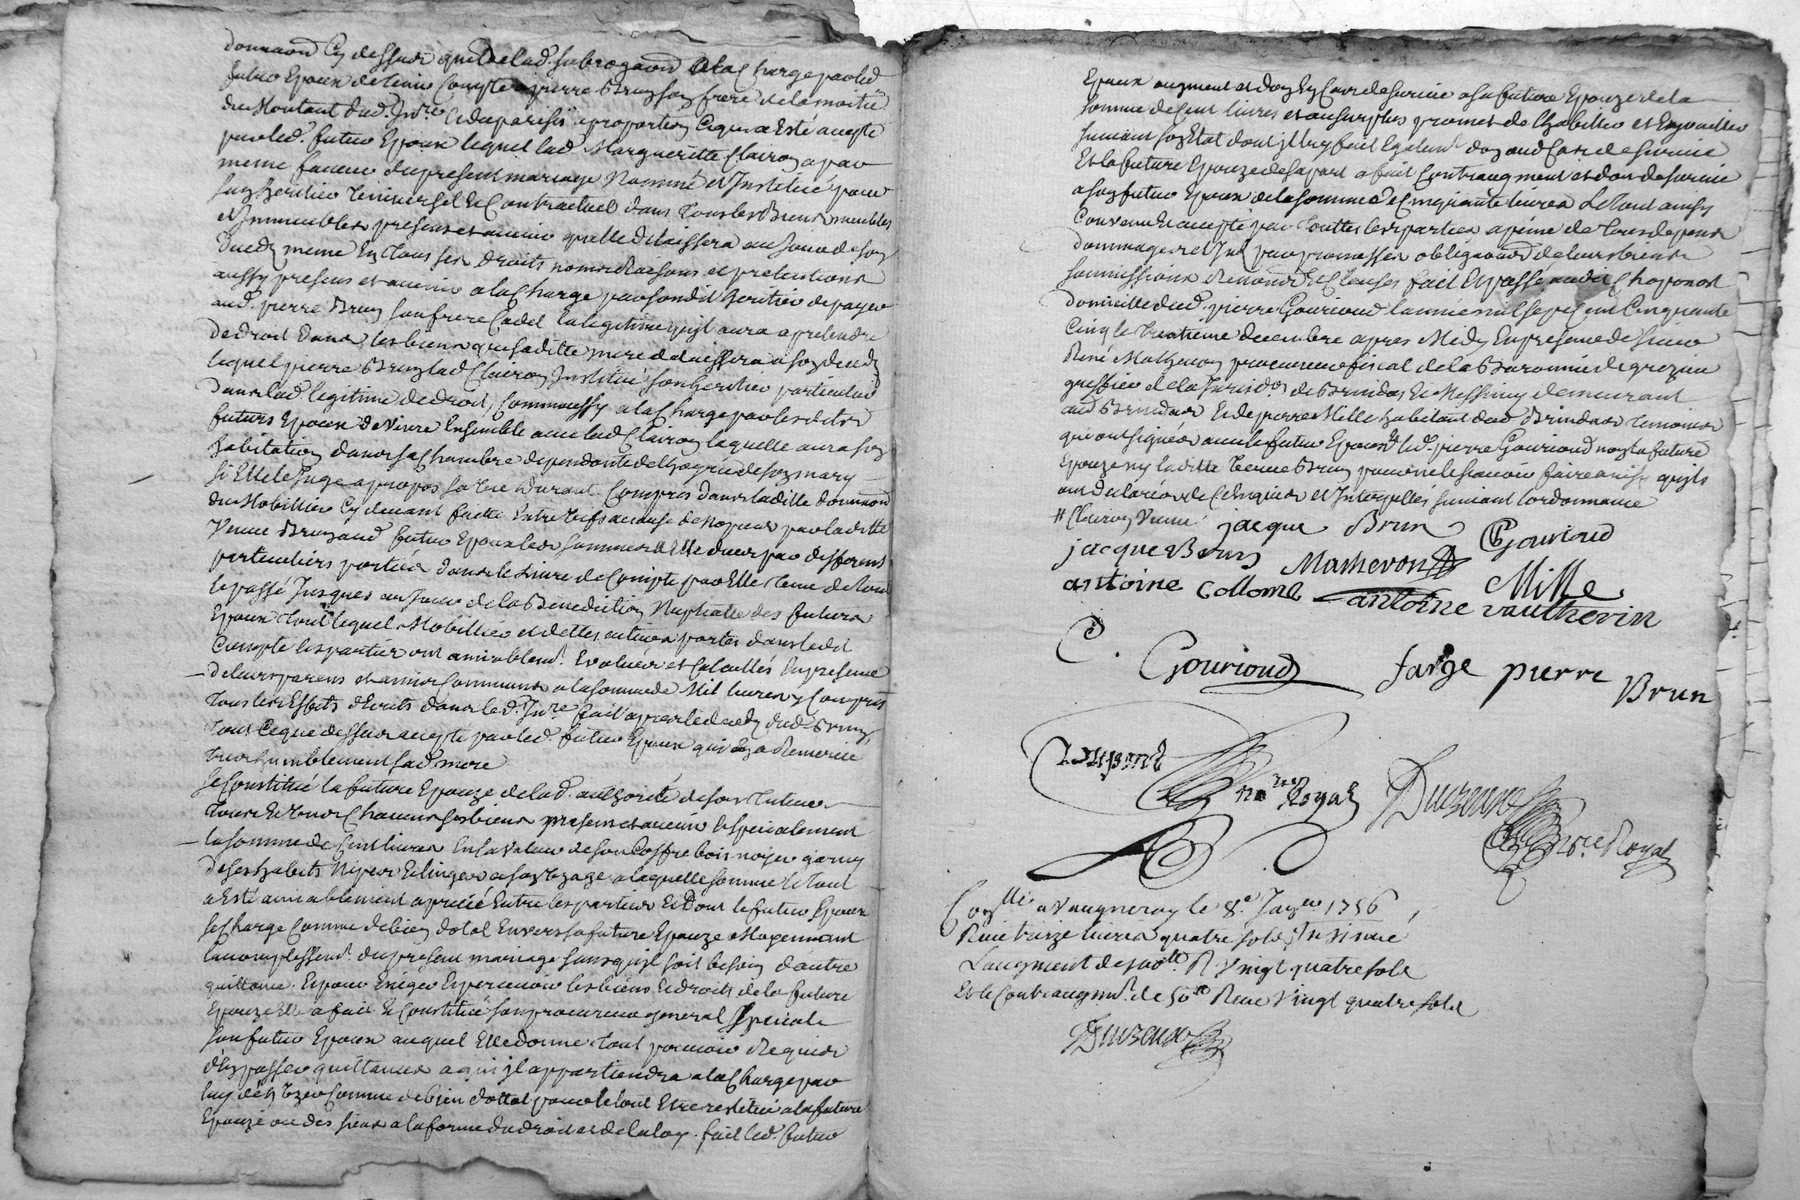 donnaon Cy dessus que de lad. subrogaon a la Charge par led
futur Epoux de tenir Compte a pierre Brun son frere de la moitié
du Montant dud. Inv.re a proportion Ce qui a Esté accepté
par led. futur Epoux lequel lad Margueritte Clairon a par
meme faveur du present mariage Nommé et Institué pour
son heritier Universel et Contractuel dans tous les Biens meubles
et Immeubles presens et avenir quelle delaissera au Jour de son
Deceds meme En tous ses droits noms Raisons et pretentions
aussy presens et avenir a la Charge par sondit heritier de payer
aud. pierre Brun son frere Cadet la legitime qu'il aura a pretendre
de droit dans les biens que saditte mere delaissera a son deceds
lequel pierre Brun lad Clairon Institue son heritier particulier
dans lad legitime de droit, Comme aussy a la Charge par lesdits
futurs Epoux de Vivre Ensemble avec lad Clairon laquelle aura son
habitation dans sa Chambre dependante de son mary
si Elle le Juge a propos sa vie Durant. Compris dans laditte donnaon
du Mobillier Cy devant faitte par laditte
Veuve Brun aud futur Epoux les sommes a Elle dues par differents
particuliers portées dans le Livre de Compte par Elle tenu de tout
le passé Jusques au Jour de la Benediction Nuptialle des futurs
Epoux tout lequel Mobillier et dettes actives portes dans ledit
Compte les parties ont amiablem.t Evalués et Calcullés En presence
de leurs parens et amis Communs a la somme de Mil livres y Compris
tous les Effets decrits dans led. Inv.re fait apres le deceds dud Brun
tout Ce que dessus accepté par led. futur Epoux qui En a Remercié
tres humblement sad mere
Se Constitue la future Epouze de lad. authorité de son Tuteur
tous Et Uns Chacuns ses biens presens et avenir Et specialement
la somme de Cent livres En la valeur de son Coffre bois noyer garny
de ses habits Nipes et linges a son Uzage a laquelle somme le tout
a Esté amiablement aprecié Entre les parties Et Dont le futur Epoux
se Charge Comme de bien dotal Envers sa future Epouze Moyennant
laccomplissem.t du present mariage sans qu'il soit besoin d'autre
quittance. Et pour Exiger Et percevoir les biens Et droits de la future
Epouze Elle a fait Et Constitué son procureur general Special
son futur Epoux auquel Elle donne tout pouvoir Requis
d'En passer quittances a qui il appartiendra a la Charge par
luy d'En Uzer Comme de bien dottal pour le tout Etre restitué a la future
Epouze ou des siens a la forme du droit et de la loy. fait led. futur
Epoux augment et don En Cas de survie a sa future Epouze de la
somme de Cent livres et au surplus promet de l'habiller et Enjoailler
suivant son Etat dont il luy fait Egalem.t don aud Cas de survie
Et la future Epouze de sa part a fait Contr'augment et don de survie
a son futur Epoux de la somme de Cinquante livres Le tout ainsy
Convenu Et accepté par touttes les parties a peine de tous depens
dommages et Int. par promesses obligaons de leurs biens
soumissions Renonc. Et Clauses fait Et passé audit Chaponost
domicille dud. pierre Gourioud lan mil sept Cent Cinquante
Cinq le trentieme decembre apres Midy En presence de sieur
René Matheron procureur fiscal de la Baronnie de grezieu
greffier de la Jurisd.on de Brindas Et Messimy demeurant
aud Brindas Et de pierre Mille habitant dud Brindas temoins
qui ont signés avec le futur Epoux led. pierre Gourioud non la future
Epouze ny laditte Veuve Brun pour ne le scavoir faire ainsy qu'ils
ont declarés de Ce Enquis et Interpellés suivant l'ordonnance
# Clairon Veuve
jacque Brun CGourioud
jacque Brun Matheron Mille
antoine Collomb antoine vauthevin
C. Gourioud farge pierre Brun
no.re Royal
Duzeup no.re Royal
Con.llé a Vaugneray le 8.e Janv.er 1756
Reçu treize livres quatre sols, Insinué
L'augment de 100.lt R. Vingt quatre sols
Et le Contr'augm.t de 50.lt Reçu Vingt quatre sols
Duzeup